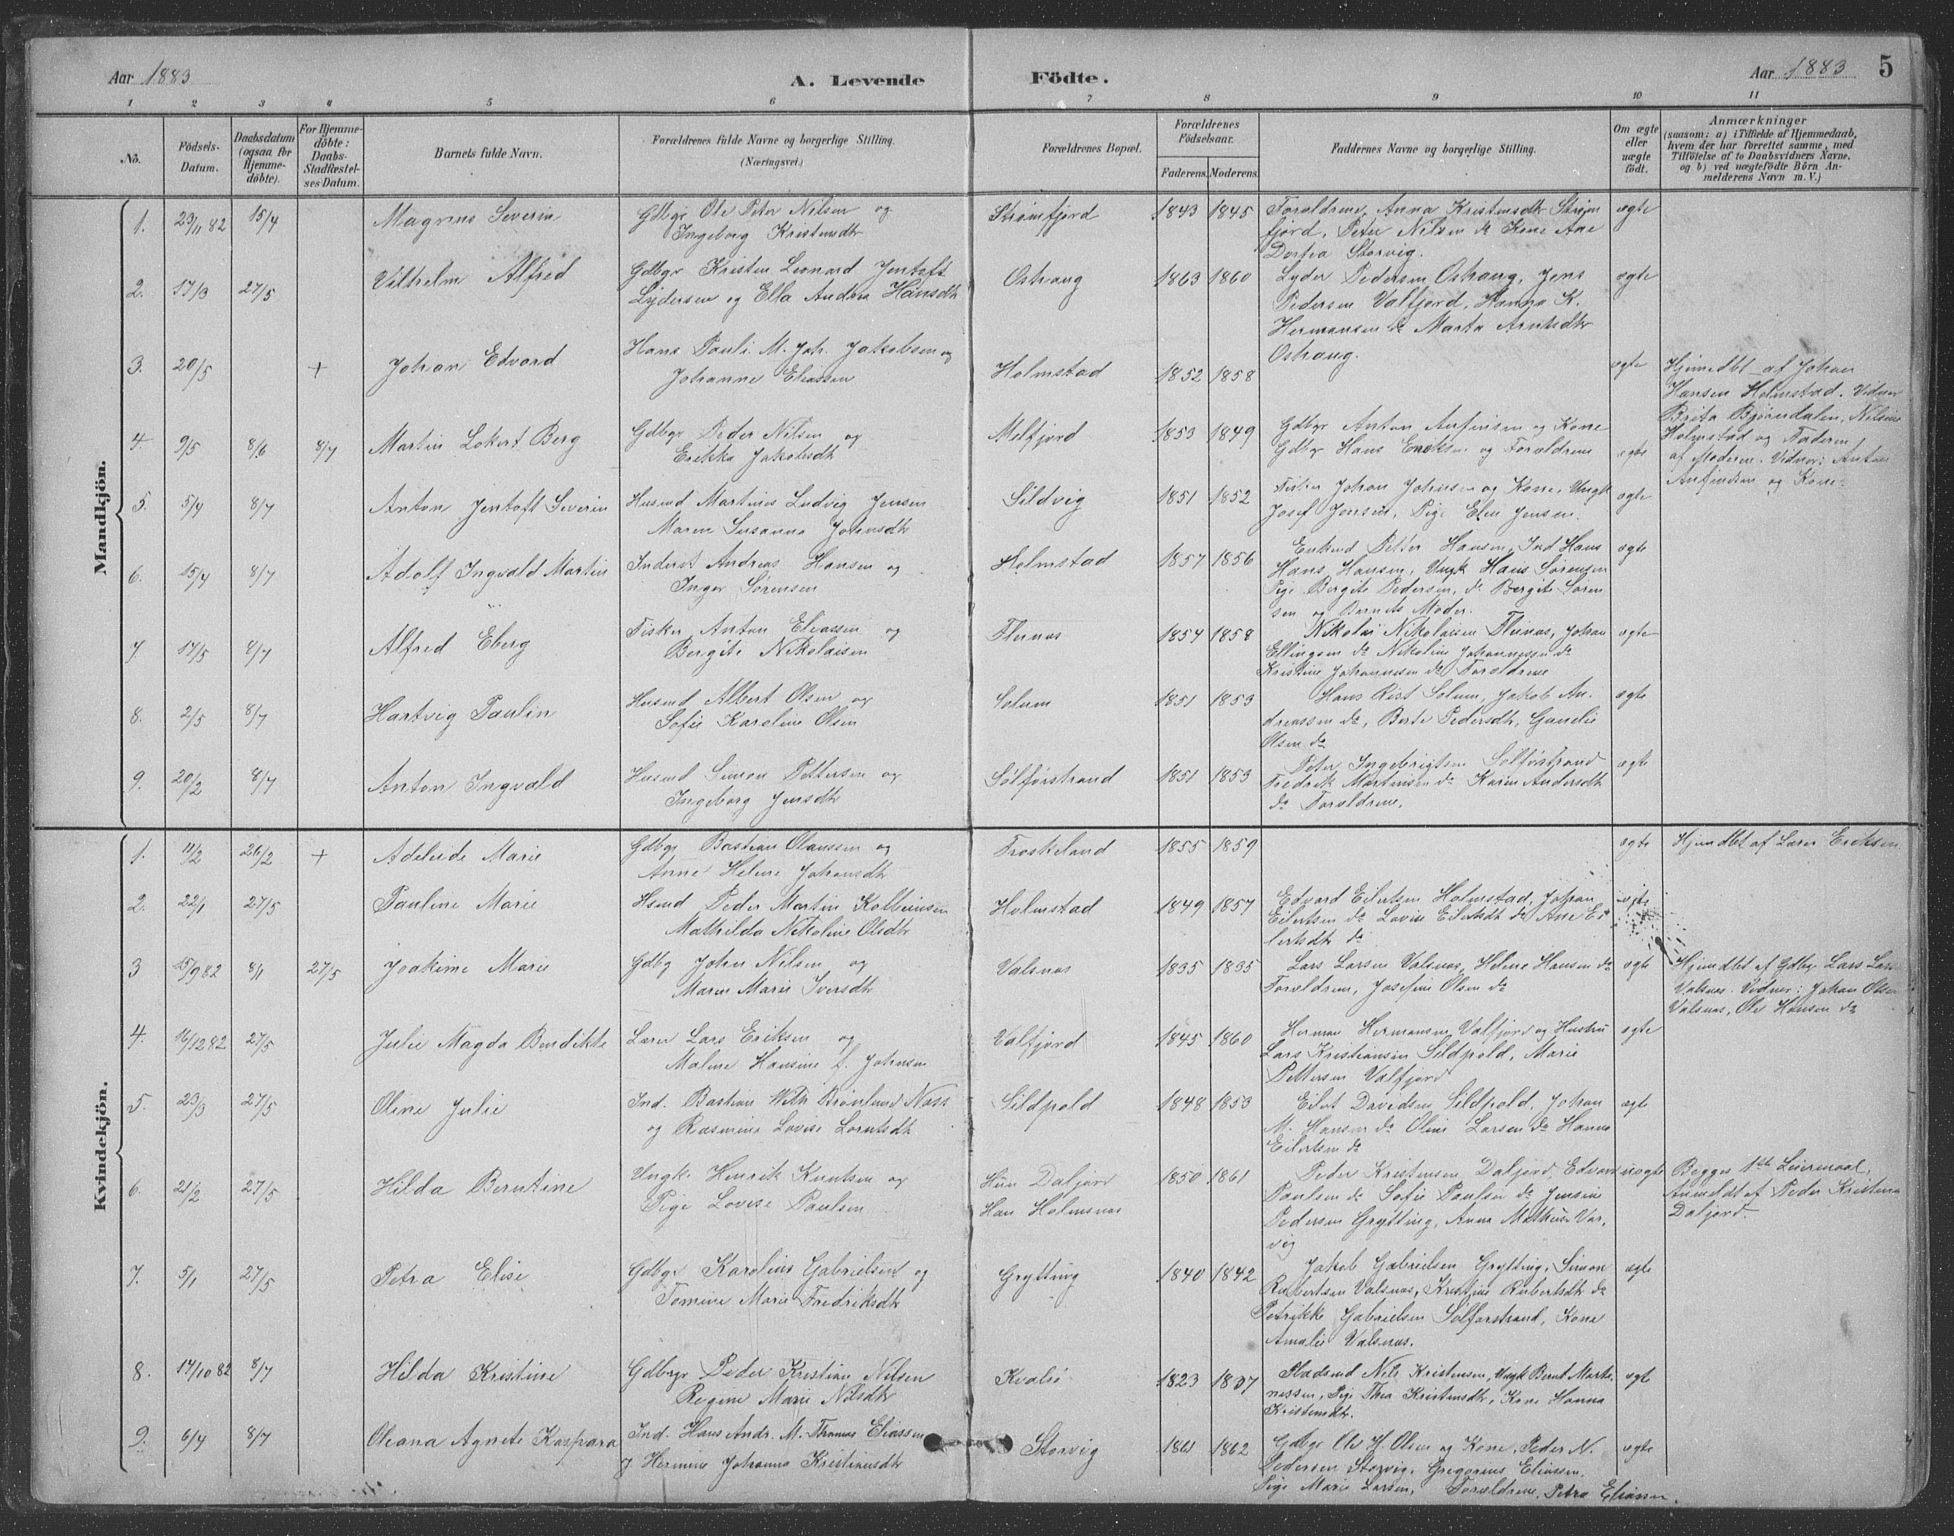 Aar 1883
A. Levende Födte.
Aar 1883 5
1 2 3 4 5 6 7 8 9 10 11
No. Födsels-Datum. Daabsdatum (ogsaa for Hjemme-döbte). For Hjemme-döbte: Daabs-Stadfæstel-ses Datum. Barnets fulde Navn. Forældrenes fulde Navne og borgerlige Stilling. (Næringsvei.) Forældrenes Bopæl. Forældrenes Födselsaar. Faderens. Moderens. Faddernes Navne og borgerlige Stilling. Om ægte eller uægte födt. Anmærkninger (saasom: a) i Tilfælde af Hjemmedaab, hvem der har forrettet samme, med Tilföielse af to Daabsvidners Navne, og b) ved uægtefödte Börn Anmelderens Navn m. V.)
Mandkjön.
1. 23/11 82 15/4 Magnus Severin Gdbgr Ole Peter Nilsen og Strømfjord 1843 1845 Forældrene, Anna Kristensdtr Strøm ægte
Ingeborg Kristensdtr fjord, Peter Nilsen do Kone Ane
Dortea Storvig.
2. 17/3 27/5 Vilhelm Alfred Gdbgr Kristen Leonard Jentoft Oshaug 1863 1860 Lyder Pedersen Oshaug, Jens ægte
Lydersen og Ella Andrea Hansdtr Pedersen Valfjord, Hanna K.
Hermansen do Marta Arntsdtr
Oshaug.
3. 20/5 + Johan Edvard Hans Pauli M. Joh. Jakobsen og Holmstad 1852 1858 ægte Hjemdbt af Johan
Johanne Eliassen Hansen Holmstad. Vidner
Brita Bjørndalen, Nilsine
Holmstad og Faderen
4 9/5 8/6 8/7 Martin Lokert Berg Gdbgr Peder Nilsen og Melfjord 1853 1849 Gdbgr Anton Anfinsen og Kone ægte af Moderen. Vidner: Anton
Erikka Jakobsdtr Gdbgr Hans Eriksen og Forældrene Anfindsen og Kone.
5. 5/4 8/7 Anton Jentoft Severin Husmd Martinus Ludvig Jensen Sildvig 1851 1852 Fisker Johan Johnsen og Kone, Ungk ægte
Maren Susanna Johnsdtr Josef Jensen, Pige Elen Jensen.
6. 15/4 8/7 Adolf Ingvald Martin Inderst Andreas Hansen og Holmstad 1857 1856 Enkmd Petter Hansen, Ind Hans ægte
Inger Sørensen Hans Hansen, Ungk Hans Sørensen
Pige Bergite Pedersen, do Bergite Søren
sen og Barnets Moder.
7. 17/5 8/7 Alfred Eberg Fisker Anton Eliassen og Flesnes 1854 1858 Nikolai Nikolaisen Flesnes, Johan ægte
Bergite Nikolaisen Ellingsen do Nikoline Johannesen do
Kristine Johannesen do Forældrene
8. 2/5 8/7 Hartvig Paulin Husmd Albert Olsen og Solum 1851 1853 Hans Rist Solum, Jakob An. ægte
Sofie Karoline Olsen dreassen do, Berte Pedersdtr, Gunelie
Olsen do
9. 20/2 8/7 Anton Ingvald Husmd Simon Pettersen og Sølførstrand 1851 1853 Peter Ingebrigtsen Sølførstrand ægte
Ingeborg Jensdtr Fredrik Martinsen do Karen Andersdtr
do Forældrene.
Kvindekjön.
1. 11/2 26/2 + Adeleide Marie Gdbgr Bastian Olaussen og Troskeland 1855 1859 ægte Hjemdbt af Lærer Eriksen
Anne Helene Johansdtr
2. 22/1 27/5 Pauline Marie Hsmd Peder Martin Kolbeinsen Holmstad 1849 1857 Edvard Eilertsen Holmstad, Johan ægte
Mathilda Nikoline Olsdtr Eilertsen do Lovise Eilertsdt do Ane Ei
lertsdtr do
3 15/9 82 8/11 27/5 Joakime Marie Gdbg Johan Nilsen og Valsnes 1835 1835 Lars Larsen Valsnes, Helene Hansen do ægte Hjemdbt af Gdbgr Lars Lars
Maren Marie Iversdtr Forældrene, Josefine Olsen do Valsnes. Vidner: Johan Olsen
Valsnes, Ole Hansen do
4. 16/12 82 27/5 Julie Magda Bendikte Lærer Lars Eriksen og Valfjord 1845 1860 Herman Hermansen Valfjord og Hustru ægte
Malene Hansine f. Johnsen Lars Kristiansen Sildpold, Marie
Pettersen Valfjord
5. 23/3 27/5 Oline Julie Ind. Bastian With Brønlund Næss Sildpold 1848 1853 Eilert Davidsen Sildpold, Johan ægte
og Rasmine Lovise Lorntsdtr M. Hansen do Oline Larsen do Hanna
Eilertsen do
6. 21/2 27/5 Hilda Berntine Ungk. Henrik Knutsen og Hun Daljord 1850 1861 Peder Kristensen Daljord, Edvard uægte Begges 1ste Leiermaal.
Pige Lovise Paulsen Han Holmsnes Paulsen do Sofie Paulsen do Jensine Anmeldt af Peder Kristensen
Pedersen Grytting, Anna Mathisen Var. Daljord.
vig
7. 5/1 27/5 Petra Elise Gdbgr Karolius Gabrielsen og Grytting 1840 1842 Jakob Gabrielsen Grytting, Simon ægte
Tomine Marie Fredriksdtr Rubertsen Valsnes, Kristine Rubertsdtr do
Petrikke Gabrielsen Sølførstrand, Kone
Amalie Valsnes.
8. 17/10 82 8/7 Hilda Kristine Gdbgr Peder Kristian Nilsen Kvalø 1823 1837 Pladsmd Nils Kristensen, Ungk Bernt Marti- ægte
Regine Marie Nilsdtr nessen, Pige Thea Kristensdtr, Kone Hanna
Kristensdtr.
9. 6/4 8/7 Oleana Agnete Kaspara Ind. Hans Andr. M. Thomas Eliassen Storvig 1861 1862 Gdbgr Ole H. Olsen og Kone, Peder N. ægte
og Hermine Johanna Kristiansdtr Pedersen Storvig, Gregorius Eliassen.
Pige Marie Larsen, Forældrene, Petra Eliassen.